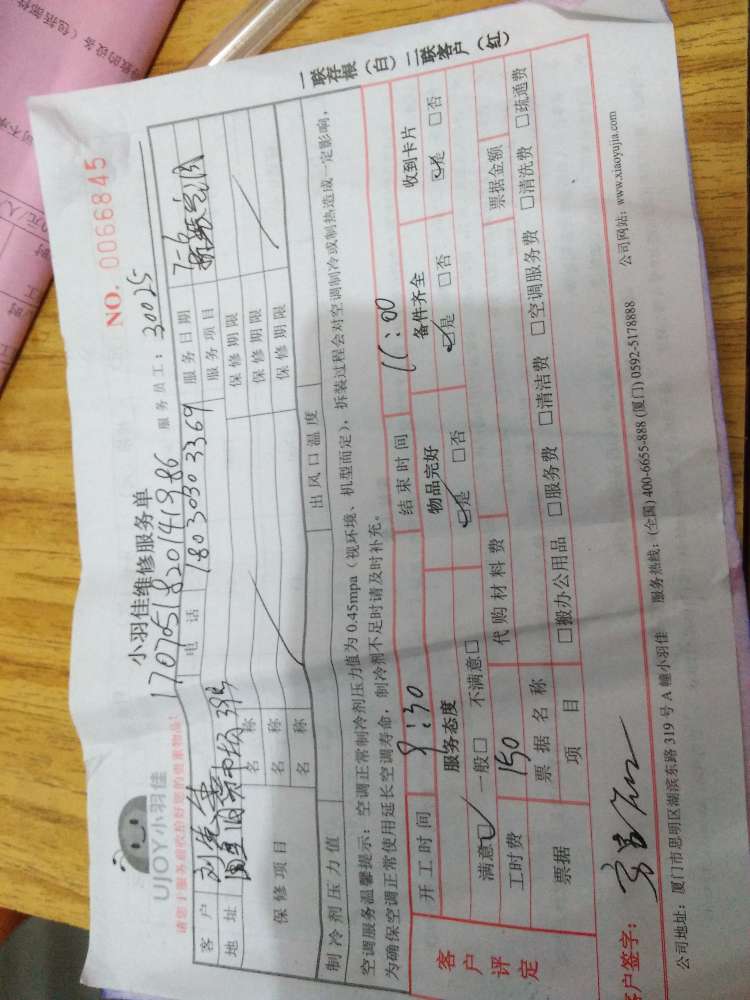 UJOY小羽佳
小羽佳维修服务单
NO. 0066845
请您于服务前收拾好您的贵重物品!
17070518201419 86
服务员工: 30025
客户
电话 180 3030 3369
服务日期 7-6
地址
服务项目
保修项目
名称 保修期限
名称 保修期限
名称 保修期限
制冷剂压力值 出风口温度
空调服务温馨提示:空调正常制冷剂压力值为0.45mpa(视环境、机型而定),拆装过程会对空调制冷或制热造成一定影响,
为确保空调正常使用延长空调寿命,制冷剂不足时请及时补充。
客户评定
开工时间 9:30 结束时间 11:00
服务态度 物品完好 备件齐全 收到卡片
满意 一般 不满意 是 否 是 否 是 否
工时费 150 代购材料费
票据 票据名称 票据金额
项目 搬办公用品 服务费 清洁费 空调服务费 清洗费 疏通费
客户签字:
公司地址:厦门市思明区湖滨东路319号A幢小羽佳 服务热线:(全国)400-6655-888(厦门)0592-5178888 公司网站:www.xiaoyujia.com
一联存根(白)二联客户(红)